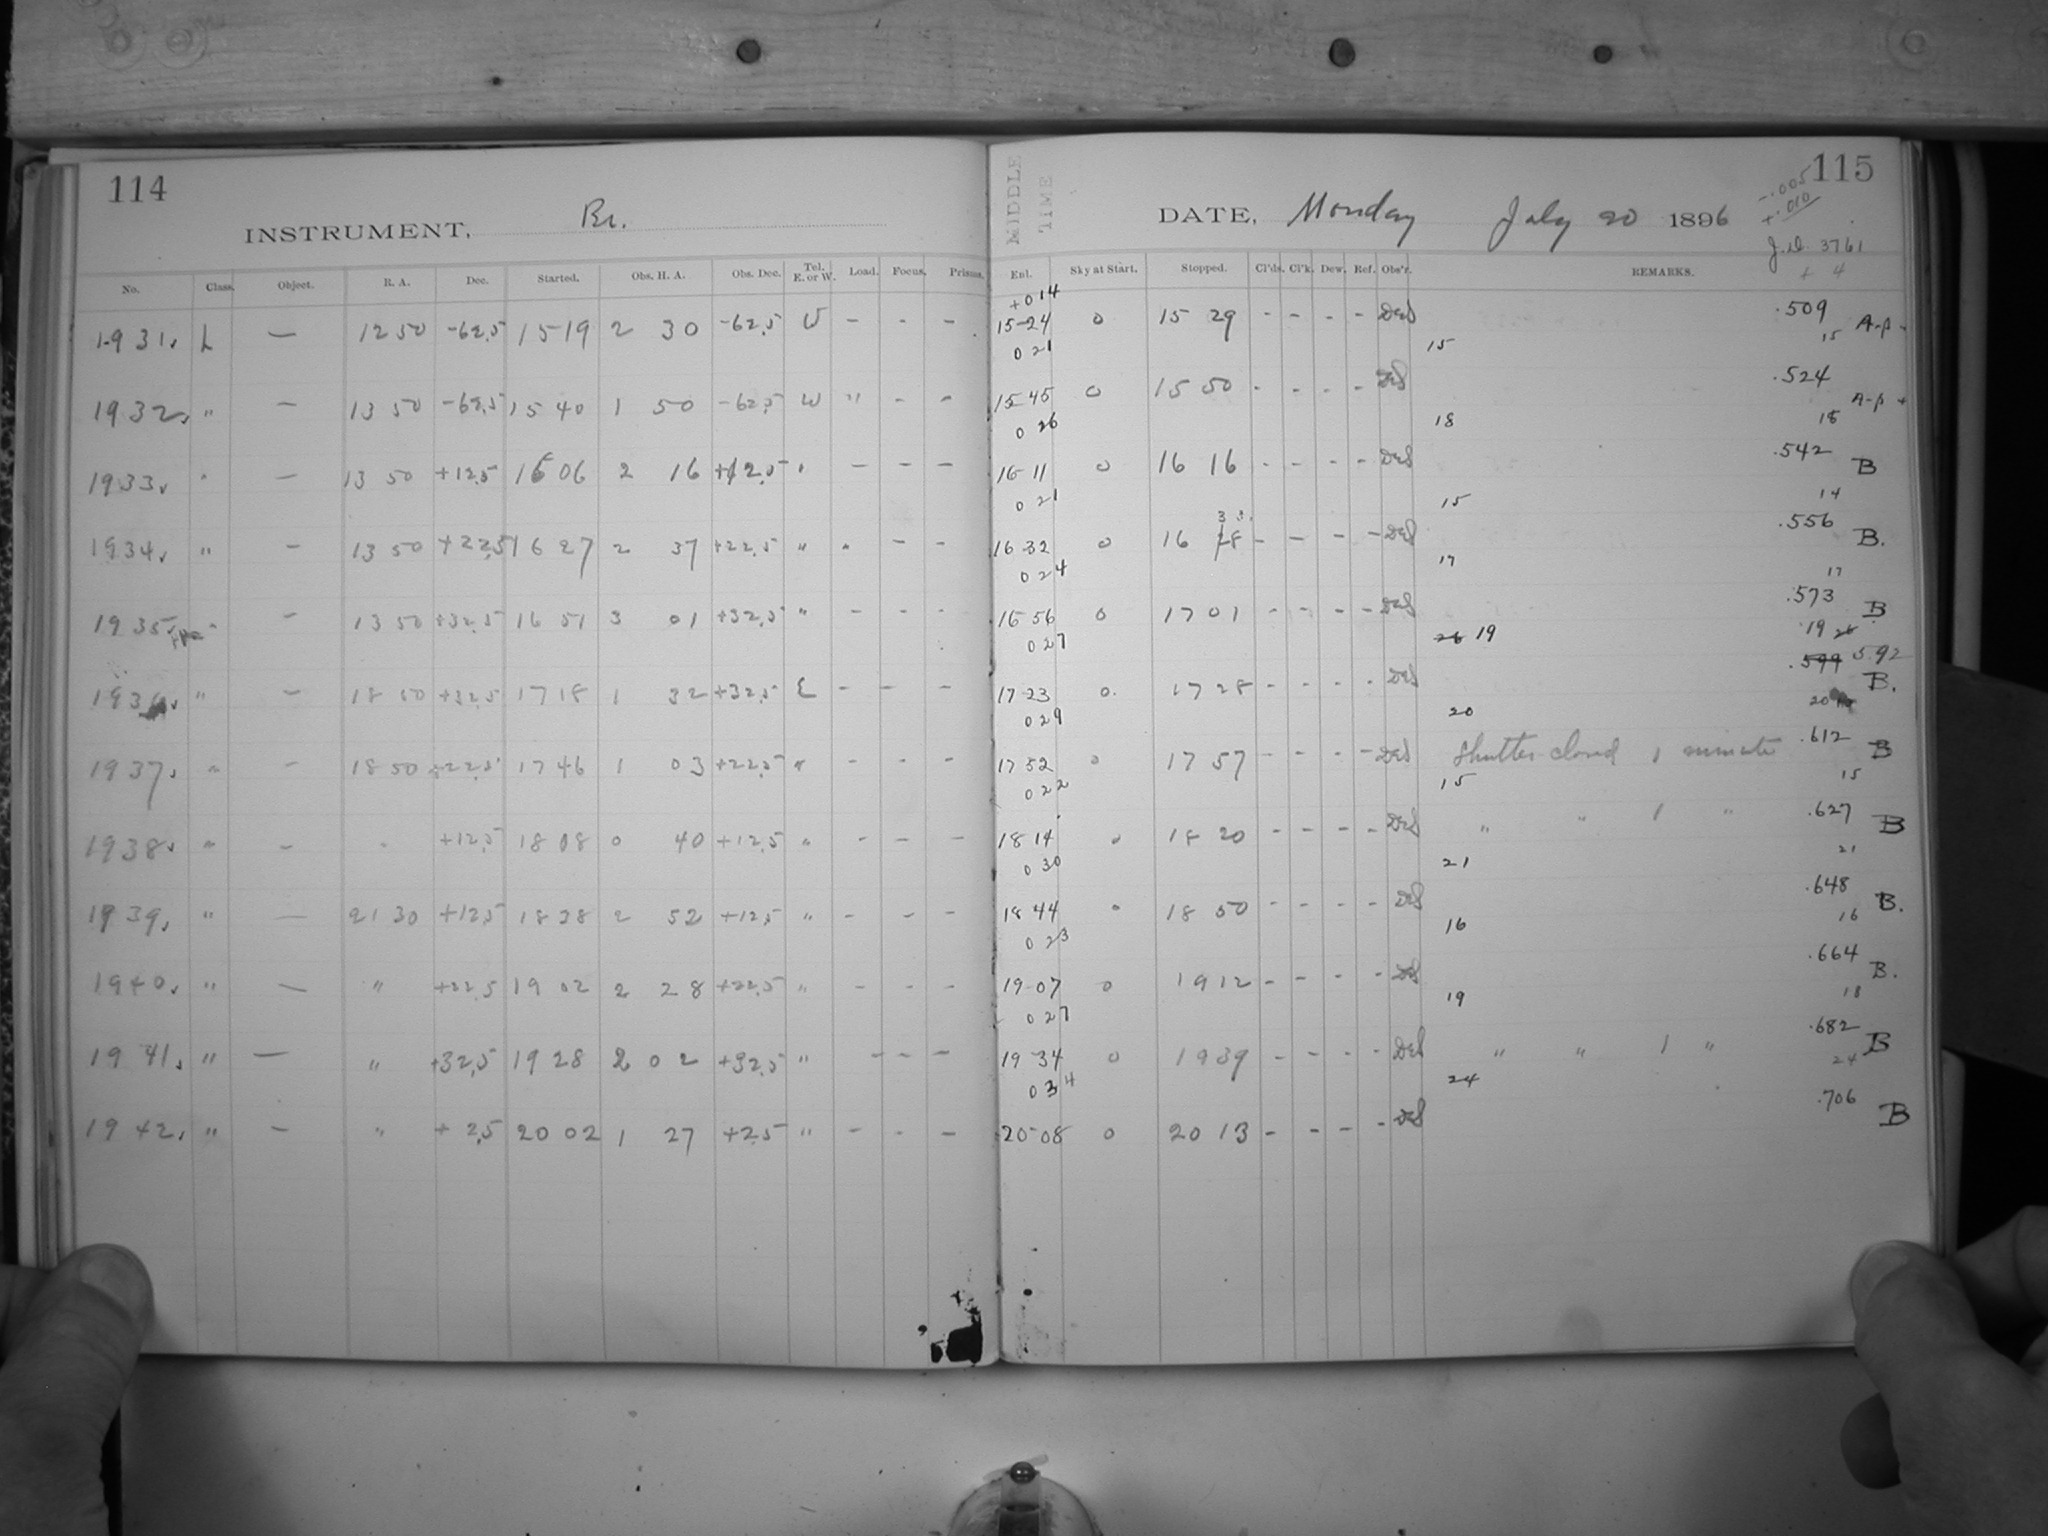 114
INSTRUMENT, Br.
No. Class. Object. R. A. Dec. Started. Obs. H. A. Obs. Dec. Tel. E. or W. Load. Focus. Prisms.
1931. L — 12 50 -62.5 15 19 2 30 -62.5 W - - -
1932. " — 13 50 -62.5 15 40 1 50 -62.5 W " - -
1933. " — 13 50 +12.5 16 06 2 16 +12.5 " — - —
1934. " — 13 50 +22.5 16 27 2 37 +22.5 " " - -
1935. " — 13 50 +32.5 16 51 3 01 +32.5 " - - -
1936. " — 18 50 +32.5 17 18 1 32 +32.5 E - - -
1937. " — 18 50 +22.5 17 46 1 03 +22.5 " - - -
1938. " — " +12.5 18 08 0 40 +12.5 " - - -
1939. " — 21 30 +12.5 18 38 2 52 +12.5 " - - -
1940. " — " +22.5 19 02 2 28 +22.5 " - - -
1941. " — " +32.5 19 28 2 02 +32.5 " - - -
1942. " — " + 2.5 20 02 1 27 +2.5 " - - -
MIDDLE TIME
115
DATE, Monday July 20 1896
-.005
+.010
J.D. 3761
+ 4
Enl. Sky at Start. Stopped. Cl'ds. Cl'k. Dew. Ref. Obs'r. REMARKS.
+014
15-24 0 15 29 - - - - DES .509 A-p -
021 15 15
15-45 0 15 50 - - - - DES .524 A-p +
026 18 18
16-11 0 16 16 - - - - DES .542 B
021 15 14
33.
16 32 0 16 28 - - - - DES .556 B.
024 17 17
16-56 0 17 01 - - - - DES .573 B
027 26 19 19 26
17-23 0. 17 28 - - - - DES .599 592 B.
029 20 20
17 52 0 17 57 - - - - DES Shutter closed 1 minute .612 B
022 15 15
18 14 0 18 20 - - - - DES " " 1 " .627 B
030 21 21
18 44 0 18 50 - - - - DES .648 B.
023 16 16
19-07 0 19 12 - - - - DES .664 B.
027 19 18
19-34 0 19 39 - - - - DES " " 1 " .682 B
034 24 24
20-08 0 20 13 - - - - DES .706 B